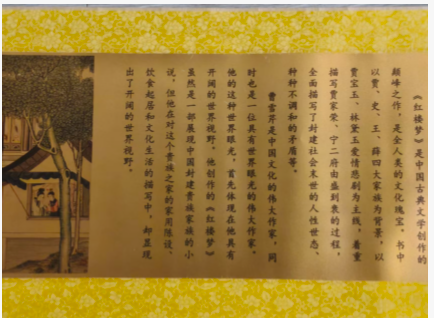 《红楼梦》是中国古典文学创作的
巅峰之作，是全人类的文化瑰宝。书中
以贾、史、王、薛四大家族为背景，以
贾宝玉、林黛玉爱情悲剧为主线，着重
描写贾家荣、宁二府由盛到衰的过程，
全面描写了封建社会末世的人性世态、
种种不调和的矛盾等。
曹雪芹是中国文化的伟大作家，同
时也是一位具有世界眼光的伟大作家。
他的这种世界眼光，首先体现在他具有
开阔的世界视野。他创作的《红楼梦》
虽然是一部展现中国封建贵族家族的小
说，但他在对这个贵族之家的家用陈设、
饮食起居和文化生活的描写中，却显现
出了开阔的世界视野。